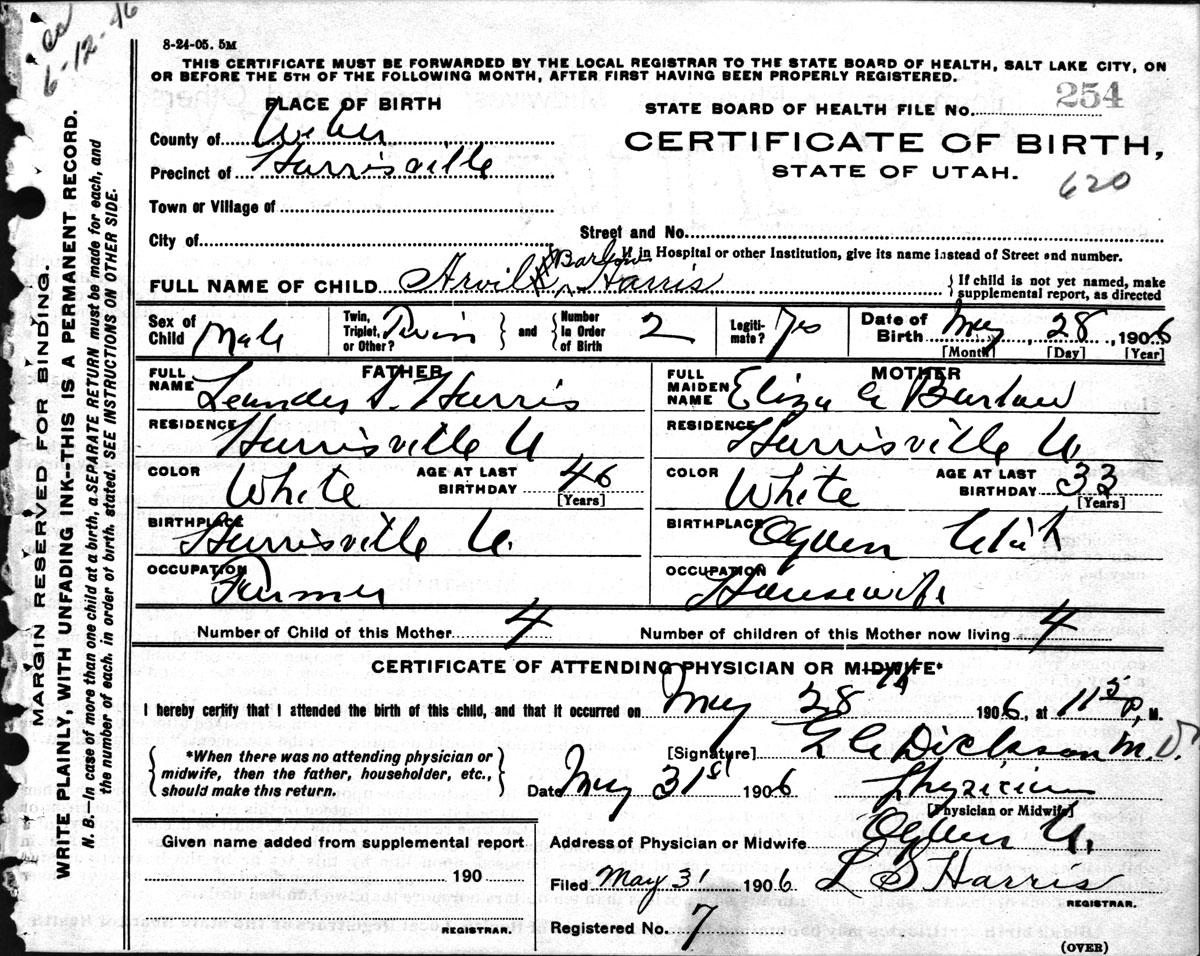 6-12-16
8-24-05. 5M
THIS CERTIFICATE MUST BE FORWARDED BY THE LOCAL REGISTRAR TO THE STATE BOARD OF HEALTH, SALT LAKE CITY, ON
OR BEFORE THE 5TH OF THE FOLLOWING MONTH, AFTER FIRST HAVING BEEN PROPERLY REGISTERED.
PLACE OF BIRTH
STATE BOARD OF HEALTH FILE No. 254
County of Weber
CERTIFICATE OF BIRTH,
Precinct of Harrisville
STATE OF UTAH.
620
Town or Village of
City of
Street and No.
If in Hospital or other Institution, give its name instead of Street and number.
Barlow
FULL NAME OF CHILD Arvil Harris
{ If child is not yet named, make
supplemental report, as directed
Sex of Child Male
Twin, Triplet, or Other? Twin } and { Number In Order of Birth 2
Legitimate? Yes
Date of Birth May, 28, 1906
[Month] [Day] [Year]
FATHER
MOTHER
FULL NAME Leander S. Harris
FULL MAIDEN NAME Eliza A Barlow
RESIDENCE Harrisville U
RESIDENCE Harrisville U.
COLOR White AGE AT LAST BIRTHDAY 46 [Years]
COLOR White AGE AT LAST BIRTHDAY 33 [Years]
BIRTHPLACE Harrisville U.
BIRTHPLACE Ogden Utah
OCCUPATION Farmer
OCCUPATION Housewife
Number of Child of this Mother 4
Number of children of this Mother now living 4
CERTIFICATE OF ATTENDING PHYSICIAN OR MIDWIFE*
I hereby certify that I attended the birth of this child, and that it occurred on May 28th 1906, at 11 5 P, M.
{ *When there was no attending physician or
midwife, then the father, householder, etc.,
should make this return. }
[Signature] Dickson M.D.
Date May 31st 1906 Physician
[Physician or Midwife]
Given name added from supplemental report
190
REGISTRAR.
Address of Physician or Midwife Ogden U.
Filed May 31 1906 L S Harris
REGISTRAR.
Registered No. 7
(OVER)
MARGIN RESERVED FOR BINDING.
WRITE PLAINLY, WITH UNFADING INK--THIS IS A PERMANENT RECORD.
N. B.—In case of more than one child at a birth, a SEPARATE RETURN must be made for each, and
the number of each, in order of birth, stated. SEE INSTRUCTIONS ON OTHER SIDE.